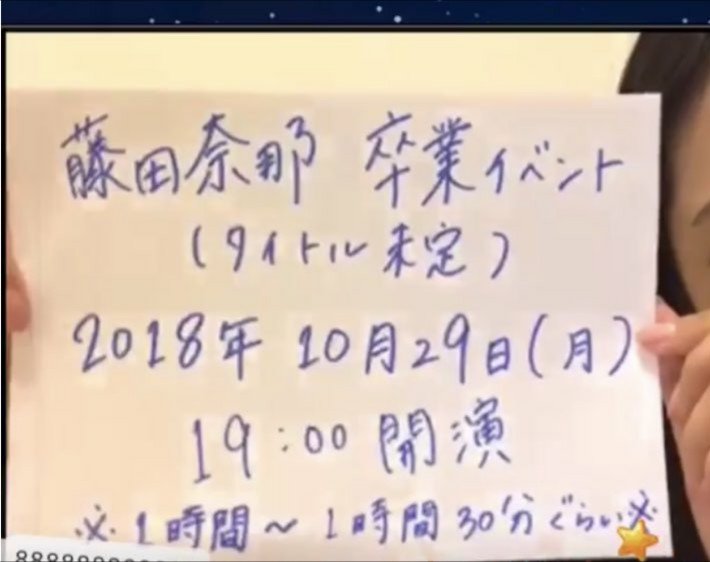 藤田奈那 卒業イベント
(タイトル未定)
2018年 10月29日(月)
19:00 開演
※1時間〜1時間30分ぐらい※
8888888888